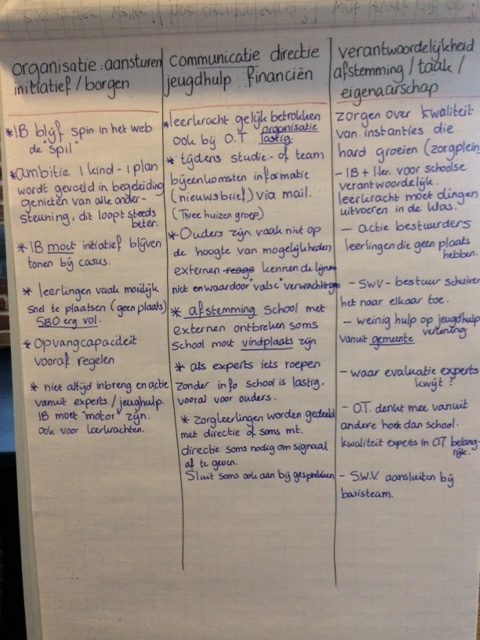 organisatie: aansturen
initiatief / borgen
* IB blijf spin in het web
de "spil"
* ambitie 1 kind - 1 plan
wordt gevoeld in begeleiding
genieten van alle onder-
steuning, dit loopt steeds
beter.
* IB moet initiatief blijven
tonen bij casus.
* leerlingen vaak moeilijk
snel te plaatsen (geen plaats)
SBO erg vol.
* Opvangcapaciteit
vooraf regelen
* niet altijd inbreng en actie
vanuit experts / jeugdhulp.
IB moet "motor" zijn.
ook voor leerkrachten.
communicatie directie
jeugdhulp financiën
* leerkracht gelijk betrokken
ook bij O.T organisatie
lastig.
* tijdens studie- of team
bijeenkomsten informatie
(nieuwsbrief) via mail.
(Twee huizen groep)
* Ouders zijn vaak niet op
de hoogte van mogelijkheden
externen kennen de lijnen
niet en waardoor valse verwachtingen
* afstemming School met
externen ontbreken soms
School moet vindplaats zijn
* als experts iets roepen
zonder info school is lastig,
vooral voor ouders.
* zorgleerlingen worden gedeeld
met directie of soms mt.
directie soms nodig om signaal
af te geven.
Sluit soms ook aan bij gesprekken
verantwoordelijkheid
afstemming / taak /
eigenaarschap
zorgen over kwaliteit
van instanties die
hard groeien (zorgplein)
- IB + lkr. voor schoolse
verantwoordelijk.
leerkracht moet dingen
uitvoeren in de klas.
- actie bestuurders
leerlingen die geen plaats
hebben.
- SWV - bestuur schuiven
het naar elkaar toe.
- weinig hulp op jeugdhulp
verlening
vanuit gemeente
- waar evaluatie experts
kwijt?
- O.T. denkt mee vanuit
andere hoek dan school.
kwaliteit experts in OT belang-
rijk.
- S.W.V aansluiten bij
basisteam.